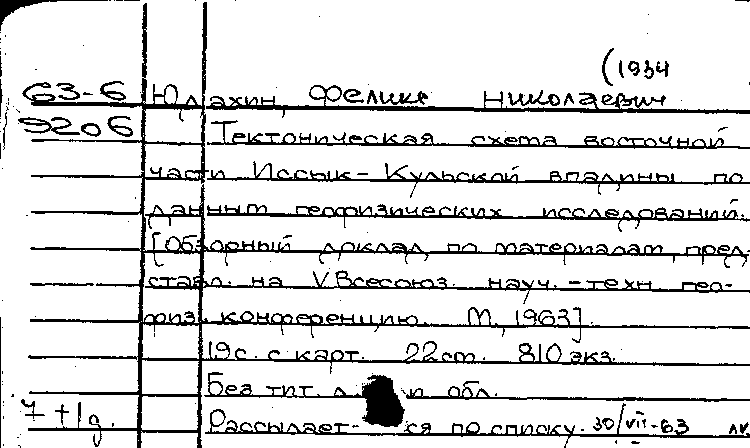 (1934
63-6 Юдахин, Феликс Николаевич
9206 Тектоническая схема восточной
части Иссык-Кульской впадины по
данным геофизических исследований.
[Обзорный доклад по материалам, пред-
ставл. на V Всесоюз. науч.-техн. гео-
физ. конференцию. М., 1963].
19с. с карт. 22см. 810 экз.
Без тит. л. и обл.
7 + 1д.
Рассылает-ся по списку. 30/VII-63